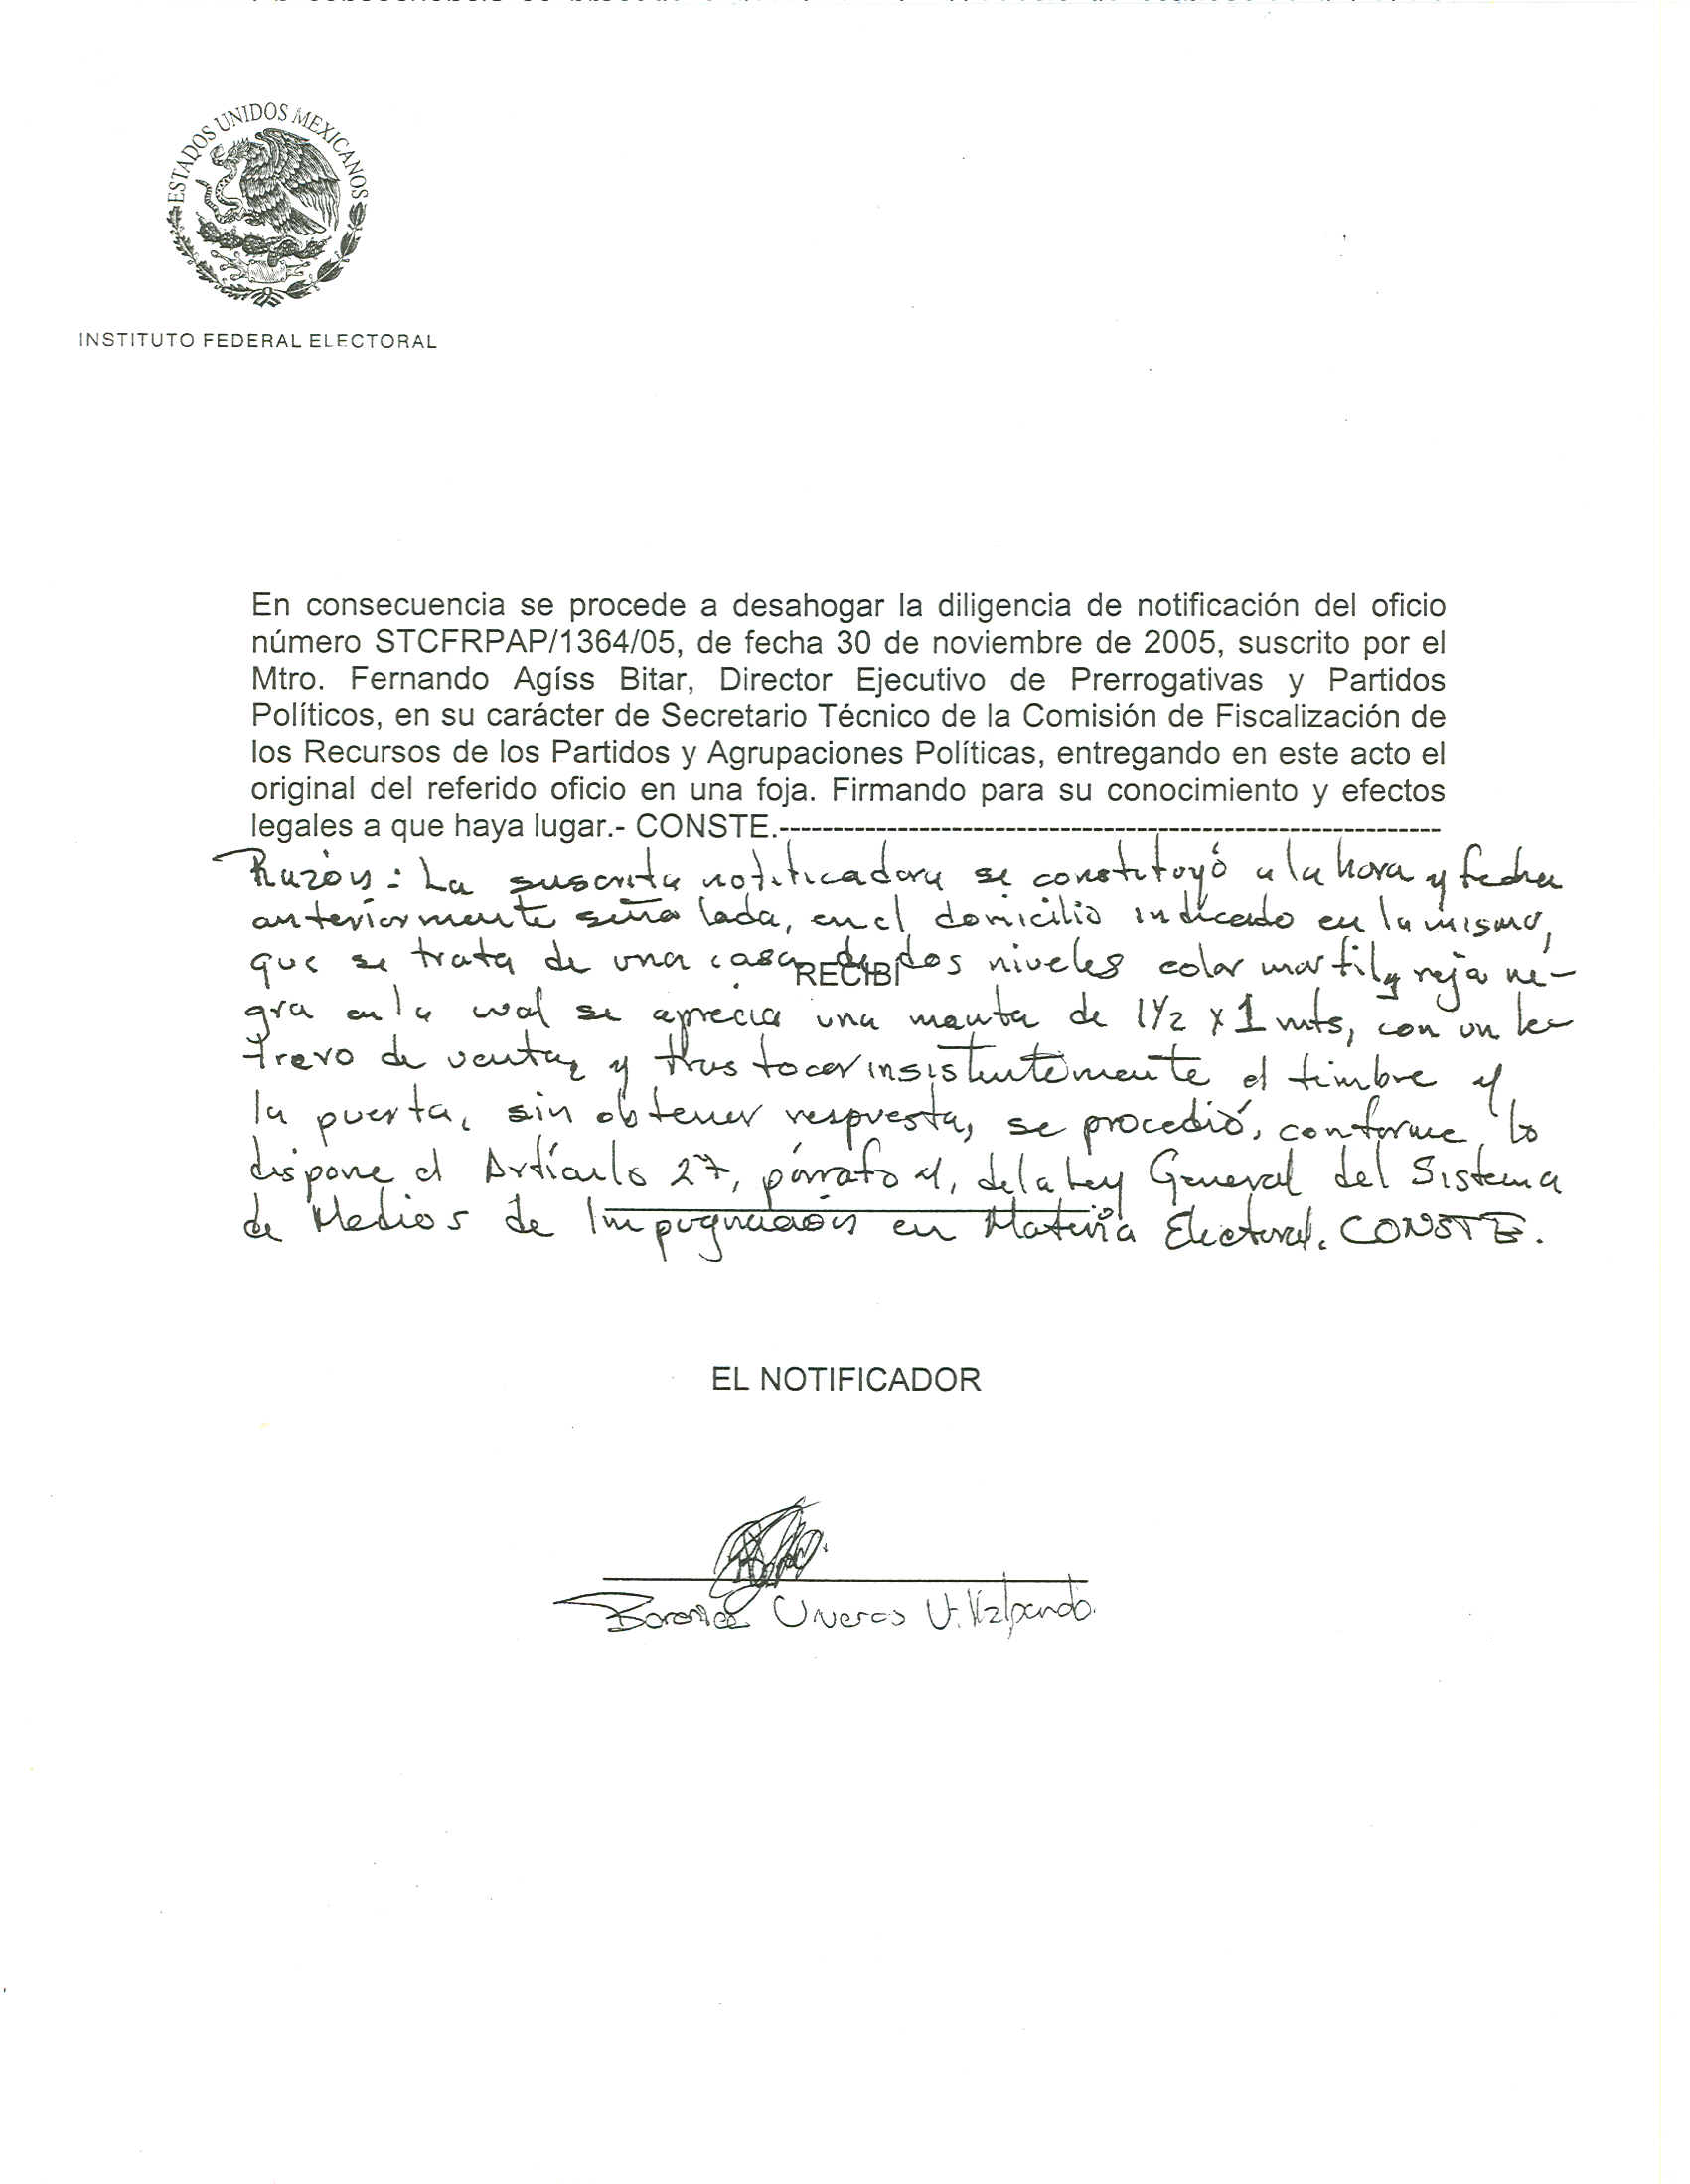 ESTADOS UNIDOS MEXICANOS
INSTITUTO FEDERAL ELECTORAL
En consecuencia se procede a desahogar la diligencia de notificación del oficio
número STCFRPAP/1364/05, de fecha 30 de noviembre de 2005, suscrito por el
Mtro. Fernando Agíss Bitar, Director Ejecutivo de Prerrogativas y Partidos
Políticos, en su carácter de Secretario Técnico de la Comisión de Fiscalización de
los Recursos de los Partidos y Agrupaciones Políticas, entregando en este acto el
original del referido oficio en una foja. Firmando para su conocimiento y efectos
legales a que haya lugar.- CONSTE.-------------------------------------------------------------
Razón: La suscrita notificadora se constituyó a la hora y fecha
anteriormente señalada, en el domicilio indicado en la misma,
que se trata de una casa de dos niveles color marfil y reja ne-
RECIBÍ
gra en la cual se aprecia una manta de 1 1/2 x 1 mts, con un le-
trero de venta, y tras tocar insistentemente el timbre y
la puerta, sin obtener respuesta, se procedió, conforme lo
dispone el Artículo 27, párrafo 4, de la Ley General del Sistema
de Medios de Impugnación en Materia Electoral. CONSTE.
EL NOTIFICADOR
Viveros Villalpando